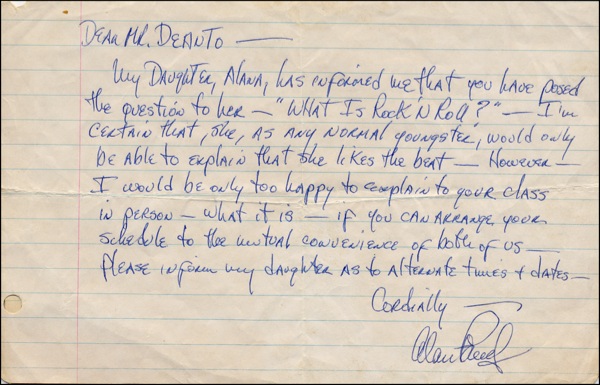 Dear Mr. Deanto —
My Daughter, Alana, has informed me that you have posed
the question to her — "What Is Rock 'N Roll?" — I'm
certain that, she, as any normal youngster, would only
be able to explain that she likes the beat — However —
I would be only too happy to explain to your class
in person — what it is — if you can arrange your
schedule to the mutual convenience of both of us —
Please inform my daughter as to alternate times & dates —
Cordially —
Alan Freed